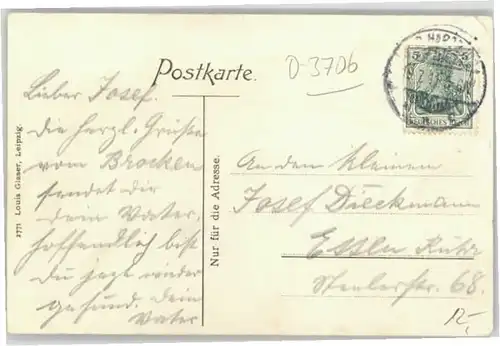 Postkarte.
D-3706
Lieber Josef.
Die herzl. Grüße
vom Brocken
sendet dir
dein Vater.
hoffendlich bist
du jezt wieder
gesund. Dein
Vater
2771 Louis Glaser, Leipzig.
Nur für die Adresse.
5 5
An den kleinen
Josef Dieckmann
Essen Ruhr
Steelerstr. 68.
12,-